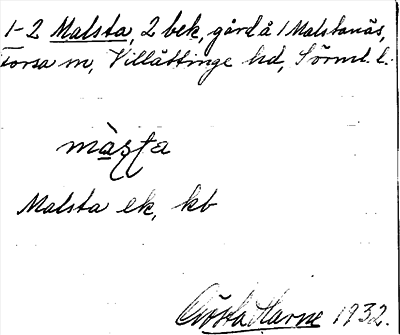 1-2 Malsta, 2 bek, gård å 1 Malstanäs,
Forsa sn, Villåttinge hd, Sörml. l.
màʂʈa
Malsta ek, kb
Gösta Harne 1932.